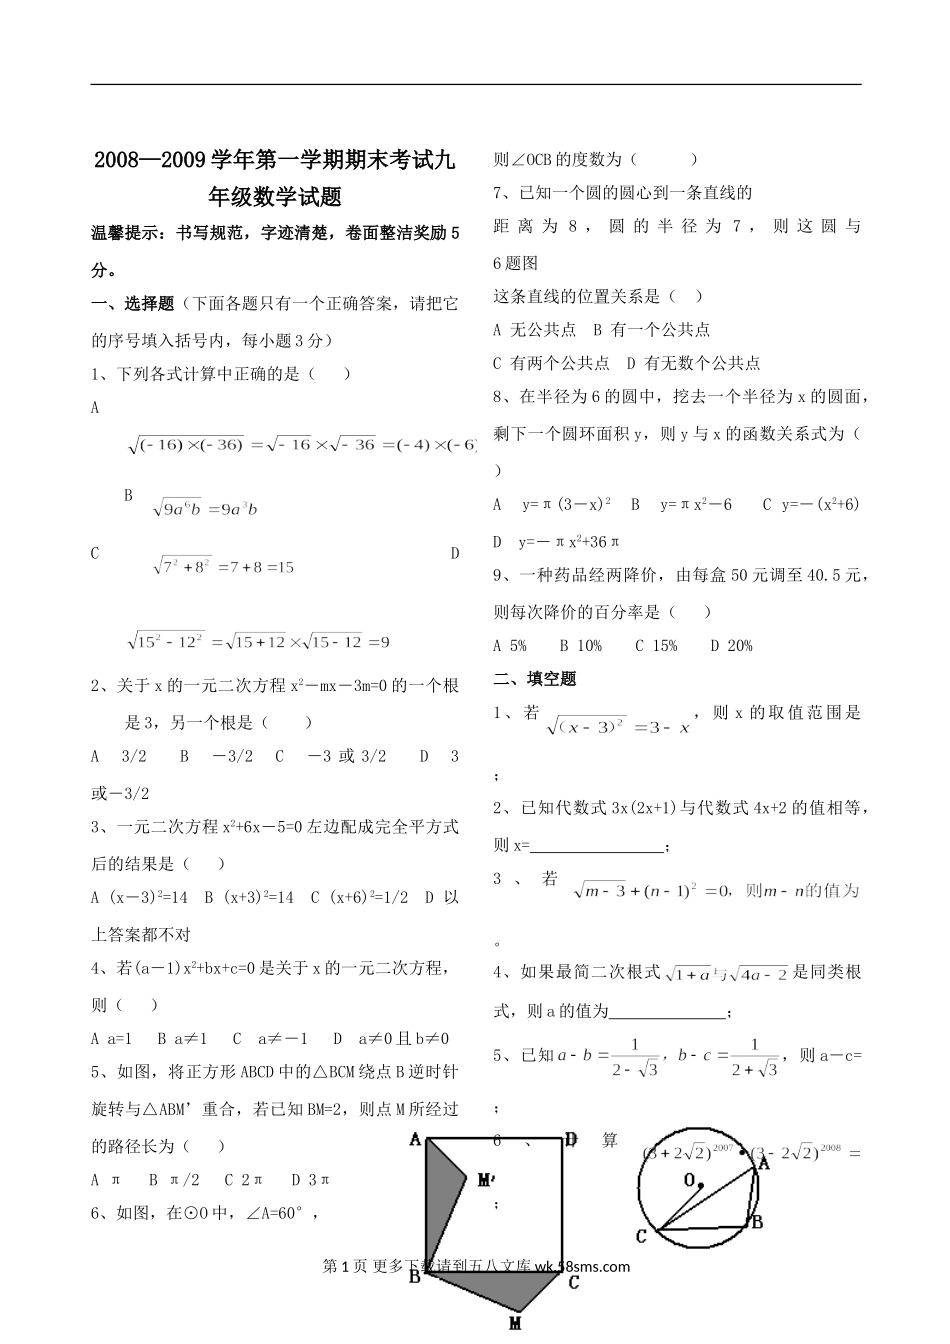 2008—2009 学年第一学期期末考试九
年级数学试题
温馨提示：书写规范，字迹清楚，卷面整洁奖励 5
分。
一、选择题（下面各题只有一个正确答案，请把它
的序号填入括号内，每小题 3 分）
1、下列各式计算中正确的是（ ）
A
√(－16)×(－36)=√－16×√－36=(－4)×(－6)
B √9a⁶b=9a³b
C √7²+8²=7+8=15 D
√15²－12²=√15+12×√15－12=9
2、关于 x 的一元二次方程 x²－mx－3m=0 的一个根
是 3，另一个根是（ ）
A 3/2 B －3/2 C －3 或 3/2 D 3
或－3/2
3、一元二次方程 x²+6x－5=0 左边配成完全平方式
后的结果是（ ）
A (x－3)²=14 B (x+3)²=14 C (x+6)²=1/2 D 以
上答案都不对
4、若(a－1)x²+bx+c=0 是关于 x 的一元二次方程，
则（ ）
A a=1 B a≠1 C a≠－1 D a≠0 且 b≠0
5、如图，将正方形 ABCD 中的△BCM 绕点 B 逆时针
旋转与△ABM’重合，若已知 BM=2，则点 M 所经过
的路径长为（ ）
A π B π/2 C 2π D 3π
6、如图，在⊙O 中，∠A=60°，
则∠OCB 的度数为（ ）
7、已知一个圆的圆心到一条直线的
距离为 8，圆的半径为 7，则这圆与
6 题图
这条直线的位置关系是（ ）
A 无公共点 B 有一个公共点
C 有两个公共点 D 有无数个公共点
8、在半径为 6 的圆中，挖去一个半径为 x 的圆面，
剩下一个圆环面积 y，则 y 与 x 的函数关系式为（
）
A y=π(3－x)² B y=πx²－6 C y=－(x²+6)
D y=－πx²+36π
9、一种药品经两降价，由每盒 50 元调至 40.5 元，
则每次降价的百分率是（ ）
A 5% B 10% C 15% D 20%
二、填空题
1、若√(x－3)²=3－x，则 x 的取值范围是
；
2、已知代数式 3x(2x+1)与代数式 4x+2 的值相等，
则 x=________________；
3、若√m－3+(n－1)²=0，则m－n的值为
。
4、如果最简二次根式√1+a与√4a－2是同类根
式，则 a 的值为______________；
5、已知a－b=1/(2－√3)，b－c=1/(2+√3)，则 a－c=
；
6、 算(3+2√2)²⁰⁰⁷•(3－2√2)²⁰⁰⁸=
；
A D
M'
B C
M
O A
C B
第 1 页 更多下载请到五八文库 wk.58sms.com